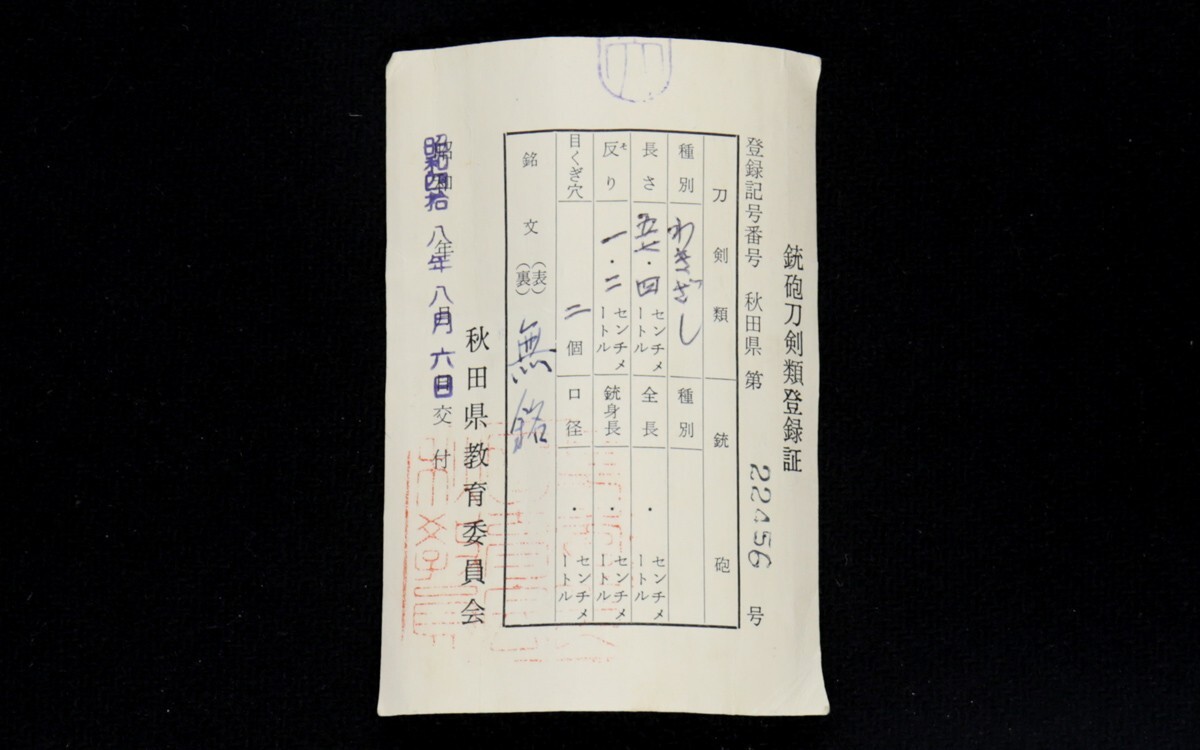 銃砲刀剣類登録証
登録記号番号 秋田県 第 22456 号
刀剣類 銃砲
種別 わきざし 種別
長さ 五七・四 センチメートル 全長 ・ センチメートル
反り ソ 一・二 センチメートル 銃身長 ・ センチメートル
目くぎ穴 二個 口径 ・ センチメートル
銘文 (表) (裏) 無銘
秋田県教育委員会
昭和四拾八年八月六日交付